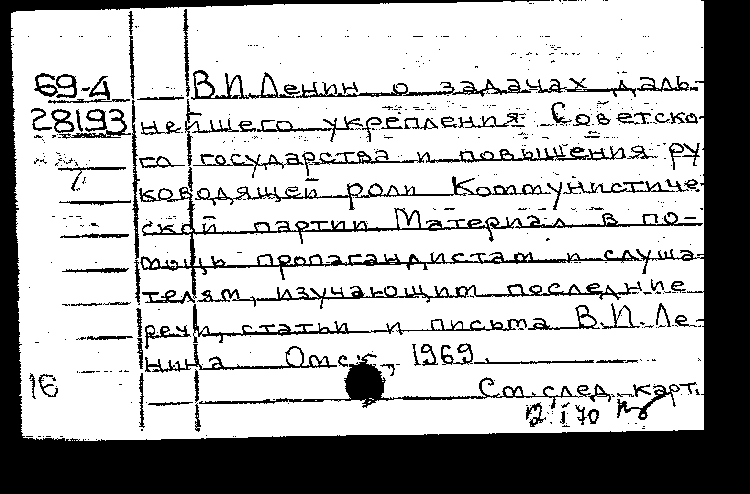 69-4 В.И.Ленин о задачах даль-
28193 нейшего укрепления Советско-
го государства и повышения ру-
ководящей роли Коммунистиче-
ской партии Материал в по-
мощь пропагандистам и слуша-
телям, изучающим последние
речи, статьи и письма В.И.Ле-
нина Омск, 1969.
16 См.след.карт.
12 I 70